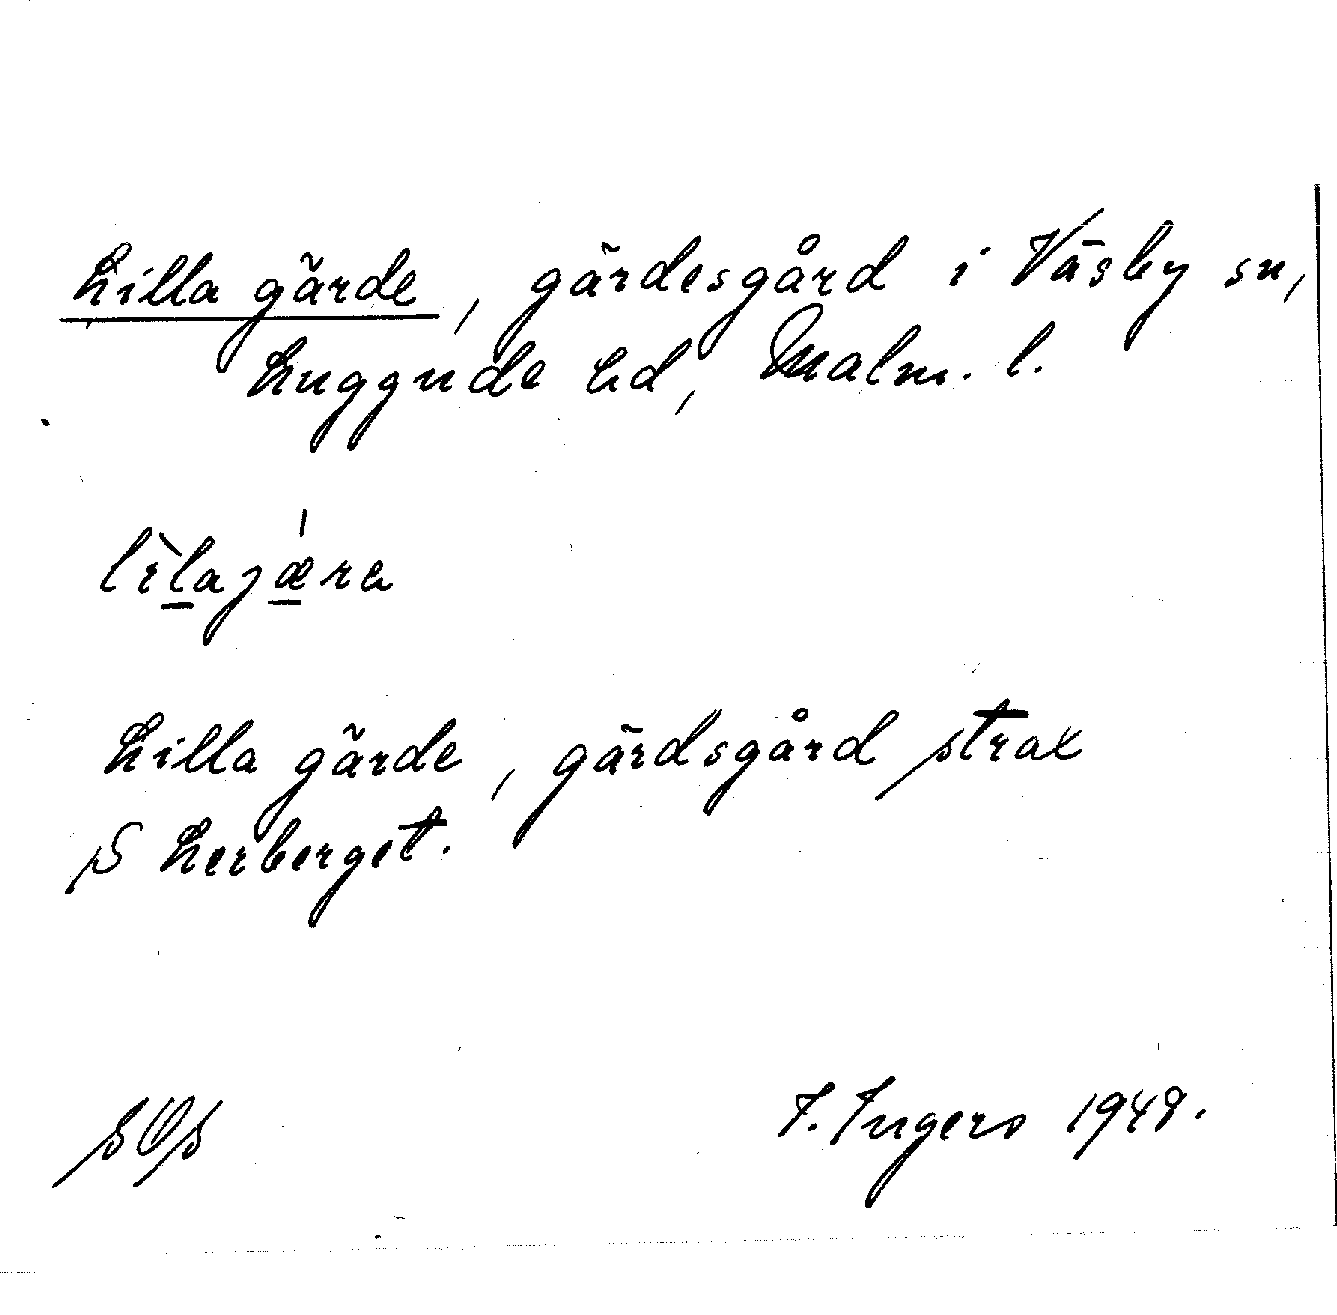 Lilla gärde, gärdesgård i Väsby sn,
Luggude hd, Malm. l.
lìlajǽra
Lilla gärde, gärdsgård strax
S Lerberget.
SOS I. Ingers 1949.